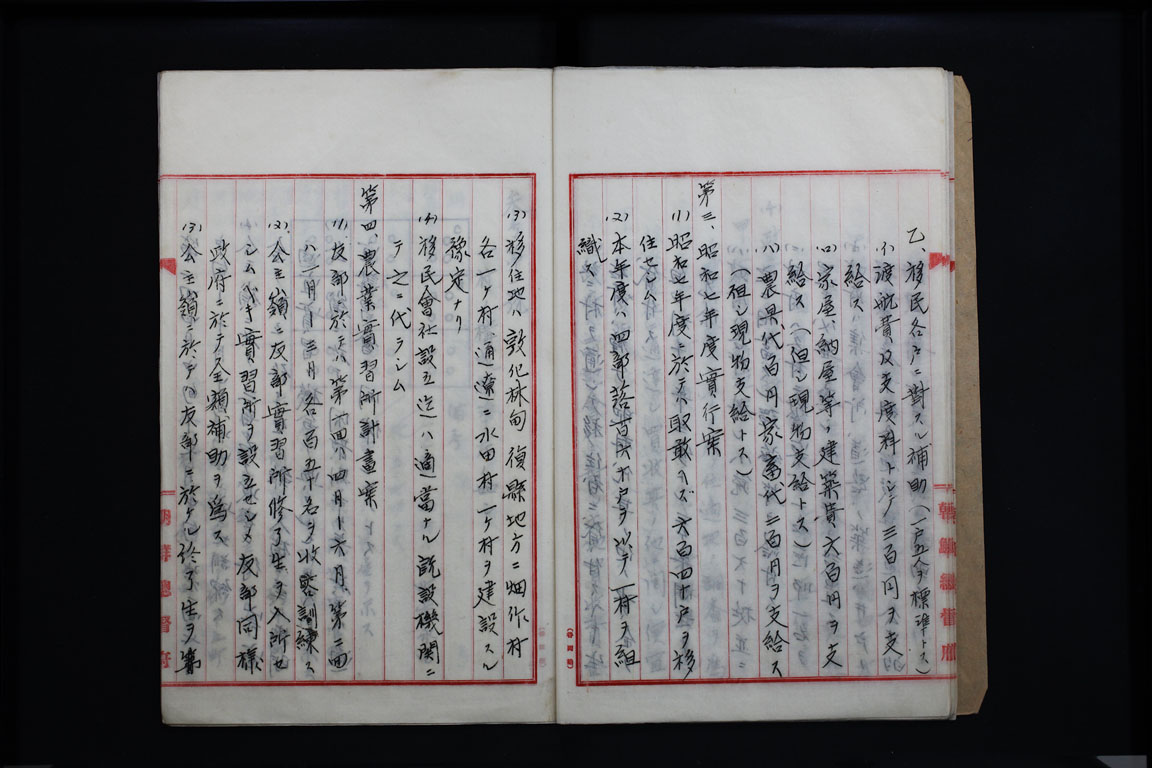 乙、移民各戸ニ對スル補助(一戸五人ヲ標準トス)
(イ)渡航費及支度料トシテ三百円ヲ支
給ス
(ロ)家屋、納屋等ノ建築費六百円ヲ支
給ス(但シ現物支給トス)
(ハ)農具代百円家畜代二百円ヲ支給ス
(但シ現物支給トス)
第三、昭和七年度實行案
(1)昭和七年度ニ於テハ取敢ヘズ六百四十戸ヲ移
住セシム
(2)本年度ハ四部落百六十戸ヲ以テ一村ヲ組
織ス
(3)移住地ハ敦化林甸復縣地方ニ畑作村
各一ケ村、通遼ニ水田村一ケ村ヲ建設スル
豫定ナリ
(4)移民會社設立迄ハ適當ナル既設機関ニ
テ之ニ代ラシム
第四、農業實習所計畫案
(1)友部ニ於テハ第一回ハ四月ー六月、第二回
ハ一月ー三月各百五十名ヲ收容訓練ス
(2)公主嶺ニ友部實習所修了生ヲ入所セ
シムベキ實習所ヲ設立セシメ友部同様
政府ニ於テ全額補助ヲ為ス
(3)公主嶺ニ於テハ友部ニ於ケル終了生ヲ第
朝鮮總督府